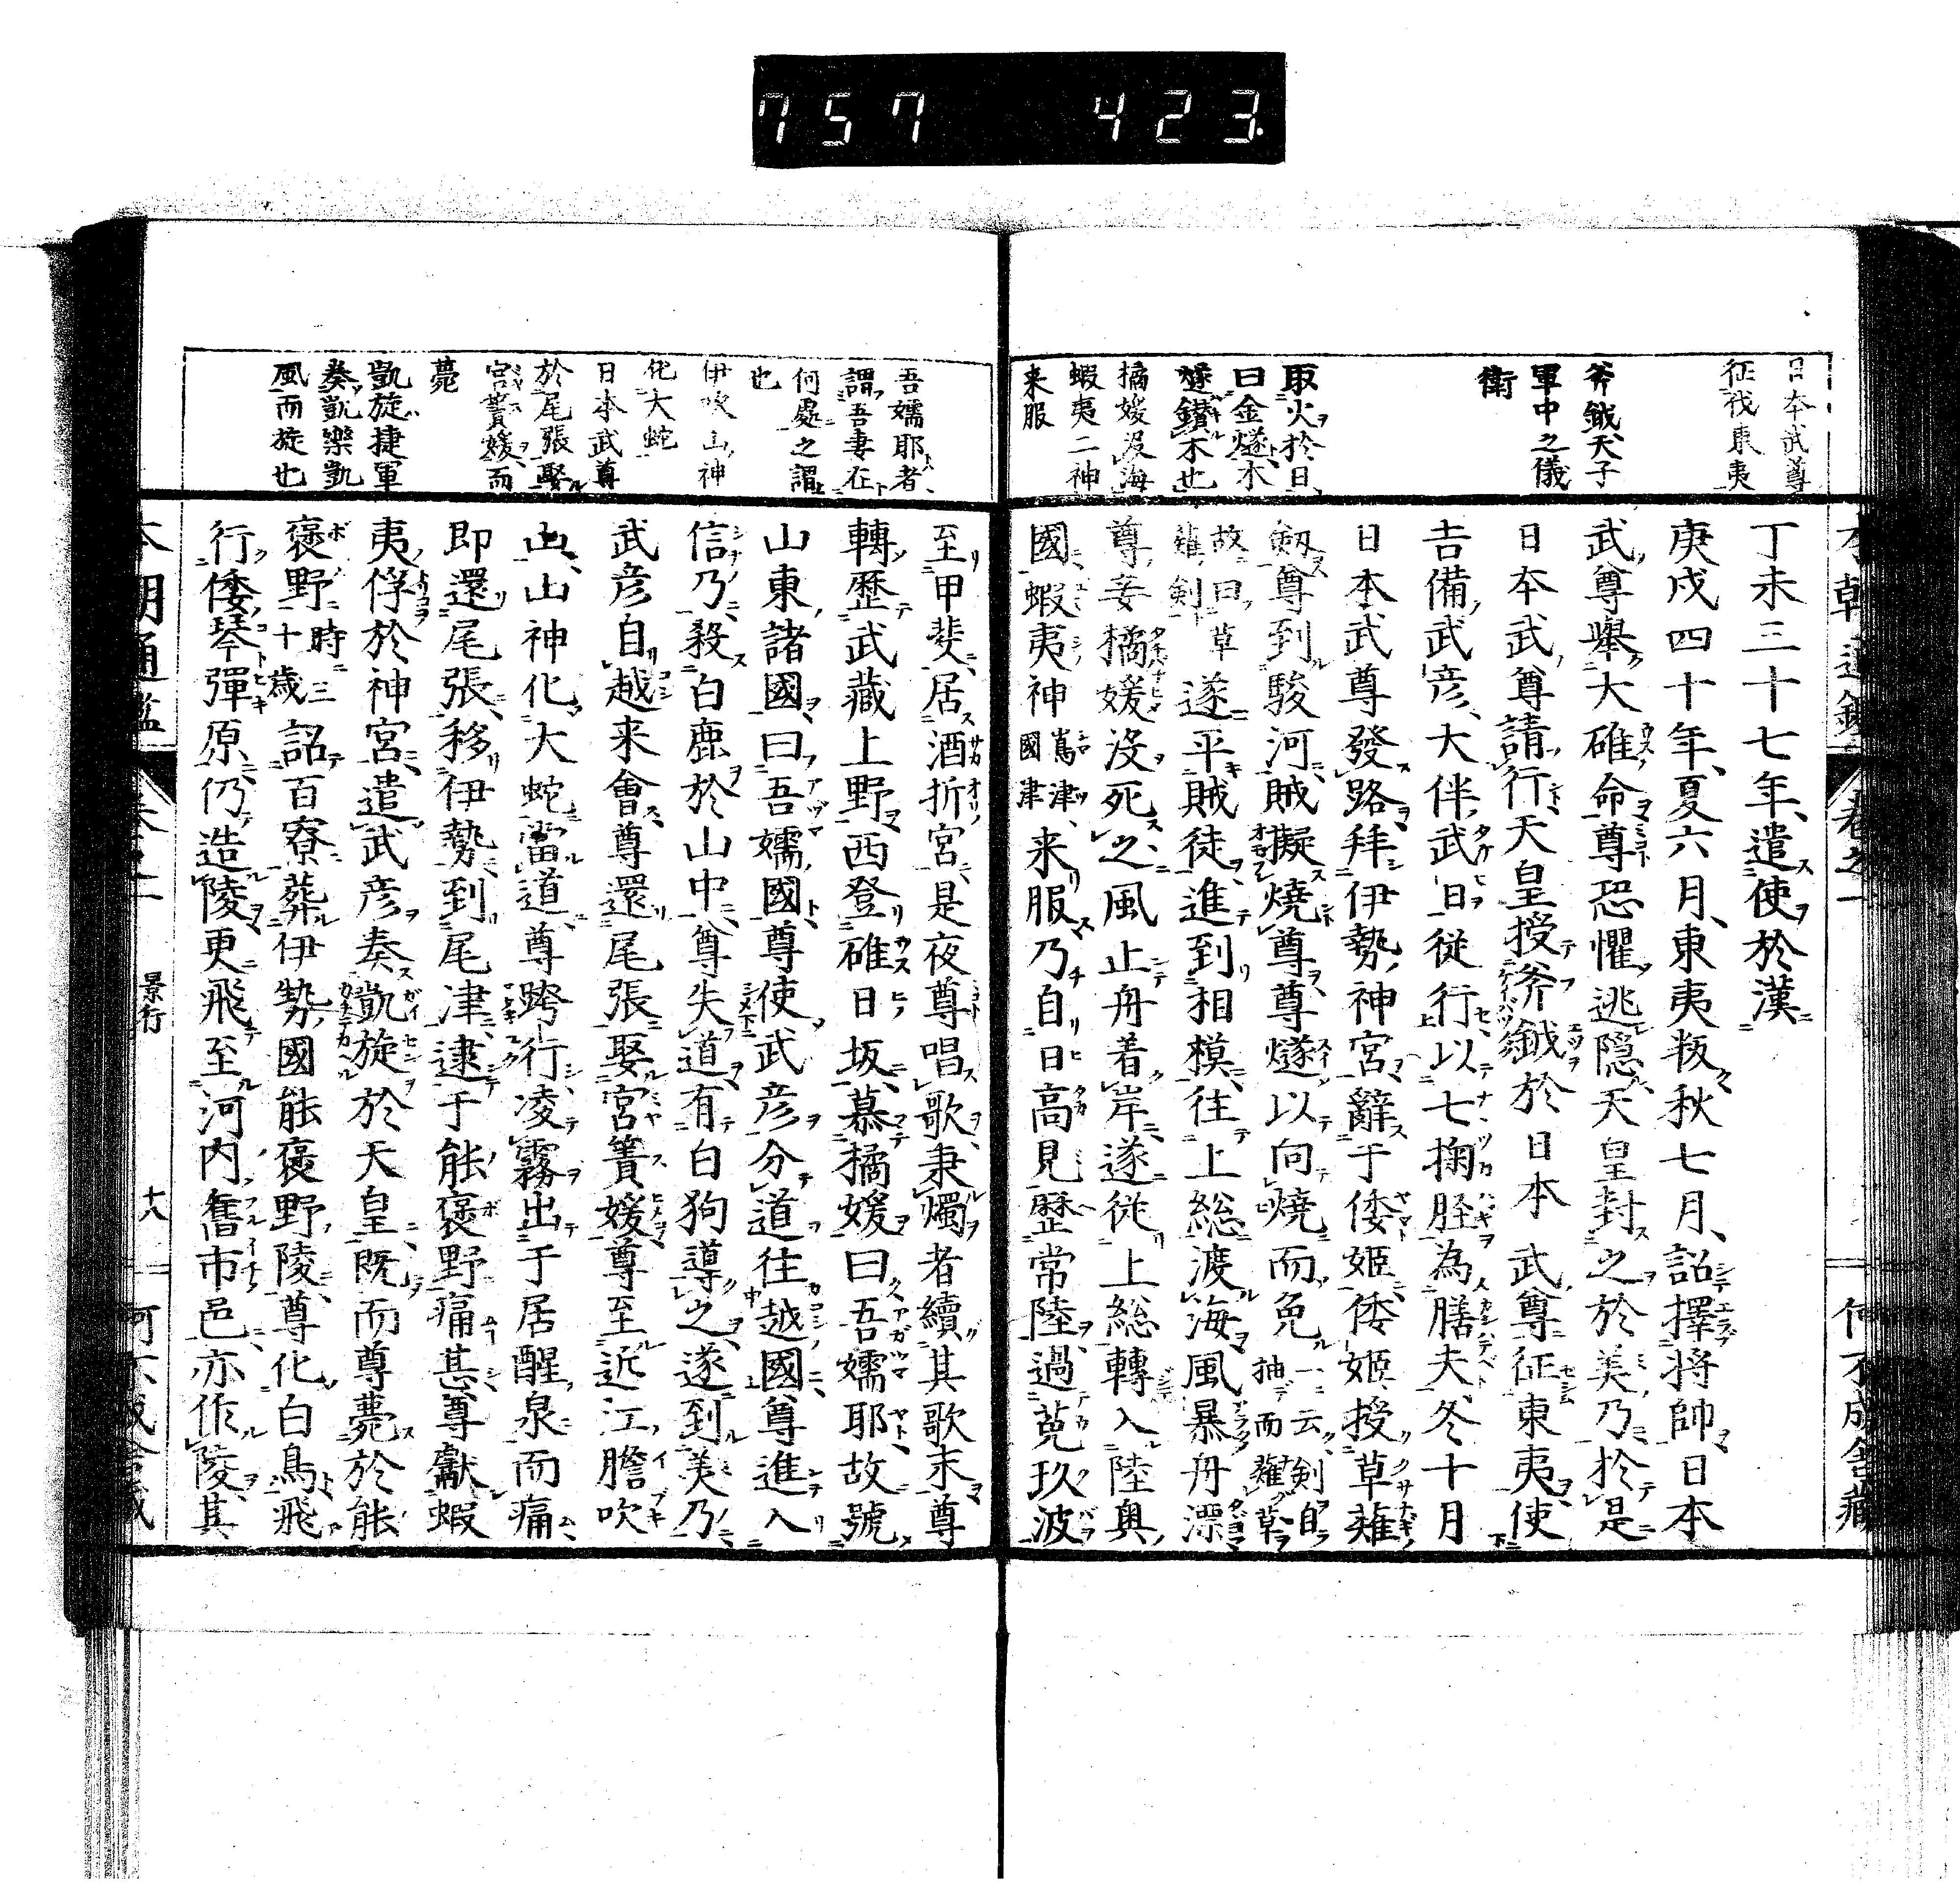 757 423
日本武尊
征伐東夷
斧鉞天子
軍中之儀
衛
取火於日
曰金燧木
燧鑽木也
橘媛没海
蝦夷二神
来服
丁未三十七年遣使於漢
庚戌四十年夏六月東夷叛秋七月詔擇将帥日本
武尊舉大碓命尊恐懼逃隠天皇封之於美乃於是
日本武尊請行天皇授斧鉞於日本武尊征東夷使
吉備武彦大伴武日従行以七掬脛為膳夫冬十月
日本武尊發路拜伊勢神宮辭于倭姫倭姫授草薙
剱尊到駿河賊擬燒尊尊燧以向燒而免一云剣自抽而薙草
故曰草薙剣遂平賊徒進到相模往上総渡海風暴舟漂
尊妾橘媛没死之風止舟着岸遂従上総轉入陸奥
國蝦夷神嶌津國津来服乃自日高見歴常陸過莵玖波
吾嬬耶者
謂吾妻在
何處之謂
也
伊吹山神
化大蛇
日本武尊
於尾張娶
宮簀媛而
薨
凱旋捷軍
奏凱樂凱
風而旋也
至甲斐居酒折宮是夜尊唱歌秉燭者續其歌末尊
轉歴武藏上野西登碓日坂慕橘媛曰吾嬬耶故號
山東諸國曰吾嬬國尊使武彦分道往越國尊進入
信乃殺白鹿於山中尊失道有白狗導之遂到美乃
武彦自越来會尊還尾張娶宮簀媛尊至近江膽吹
山山神化大蛇當道尊跨行凌霧出于居醒泉而痛
即還尾張移伊勢到尾津逮于能褒野痛甚尊獻蝦
夷俘於神宮遣武彦奏凱旋於天皇既而尊薨於能
褒野時三十歳詔百寮葬伊勢國能褒野陵尊化白鳥飛
行倭琴彈原仍造陵更飛至河内舊市邑亦作陵其
景行
十八